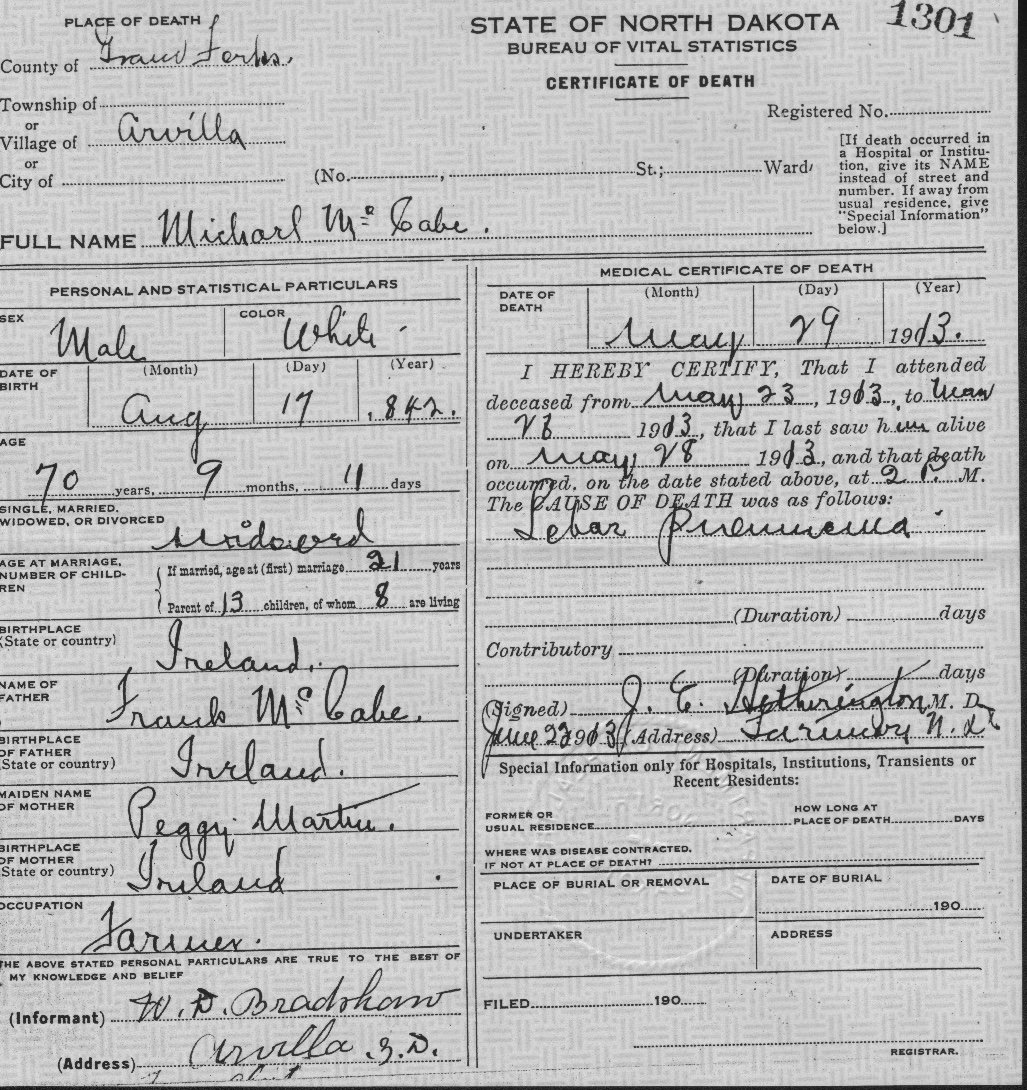 1301
PLACE OF DEATH
County of Grand Forks.
Township of
or
Village of Arvilla
or
City of
STATE OF NORTH DAKOTA
BUREAU OF VITAL STATISTICS
CERTIFICATE OF DEATH
Registered No.
(No. , St.; Ward
[If death occurred in
a Hospital or Institu-
tion, give its NAME
instead of street and
number. If away from
usual residence, give
"Special Information"
below.]
FULL NAME Michael Mc Cabe.
PERSONAL AND STATISTICAL PARTICULARS
SEX Male
COLOR White
DATE OF
BIRTH
(Month) (Day) (Year)
Aug 17 1842.
AGE
70 years, 9 months, 11 days
SINGLE, MARRIED,
WIDOWED, OR DIVORCED
Widowed
AGE AT MARRIAGE,
NUMBER OF CHILD-
REN
If married, age at (first) marriage 21 years
Parent of 13 children, of whom 8 are living
BIRTHPLACE
(State or country)
Ireland.
NAME OF
FATHER
Frank Mc Cabe.
BIRTHPLACE
OF FATHER
(State or country)
Ireland.
MAIDEN NAME
OF MOTHER
Peggy Martin.
BIRTHPLACE
OF MOTHER
(State or country)
Ireland
OCCUPATION
Farmer.
THE ABOVE STATED PERSONAL PARTICULARS ARE TRUE TO THE BEST OF
MY KNOWLEDGE AND BELIEF
(Informant) W. D. Bradshaw
(Address) Arvilla N.D.
MEDICAL CERTIFICATE OF DEATH
DATE OF
DEATH
(Month) (Day) (Year)
May 29 1913.
I HEREBY CERTIFY, That I attended
deceased from May 23, 1913, to May
28 1913, that I last saw him alive
on May 28 1913, and that death
occurred, on the date stated above, at 2 P. M.
The CAUSE OF DEATH was as follows:
Lobar Pneumonia
(Duration) days
Contributory
(Duration) days
(Signed) J. E. Hetherington M. D.
June 2 1913 (Address) N. D
Special Information only for Hospitals, Institutions, Transients or
Recent Residents:
FORMER OR
USUAL RESIDENCE
HOW LONG AT
PLACE OF DEATH DAYS
WHERE WAS DISEASE CONTRACTED,
IF NOT AT PLACE OF DEATH?
PLACE OF BURIAL OR REMOVAL
DATE OF BURIAL
190
UNDERTAKER
ADDRESS
FILED 190
REGISTRAR.